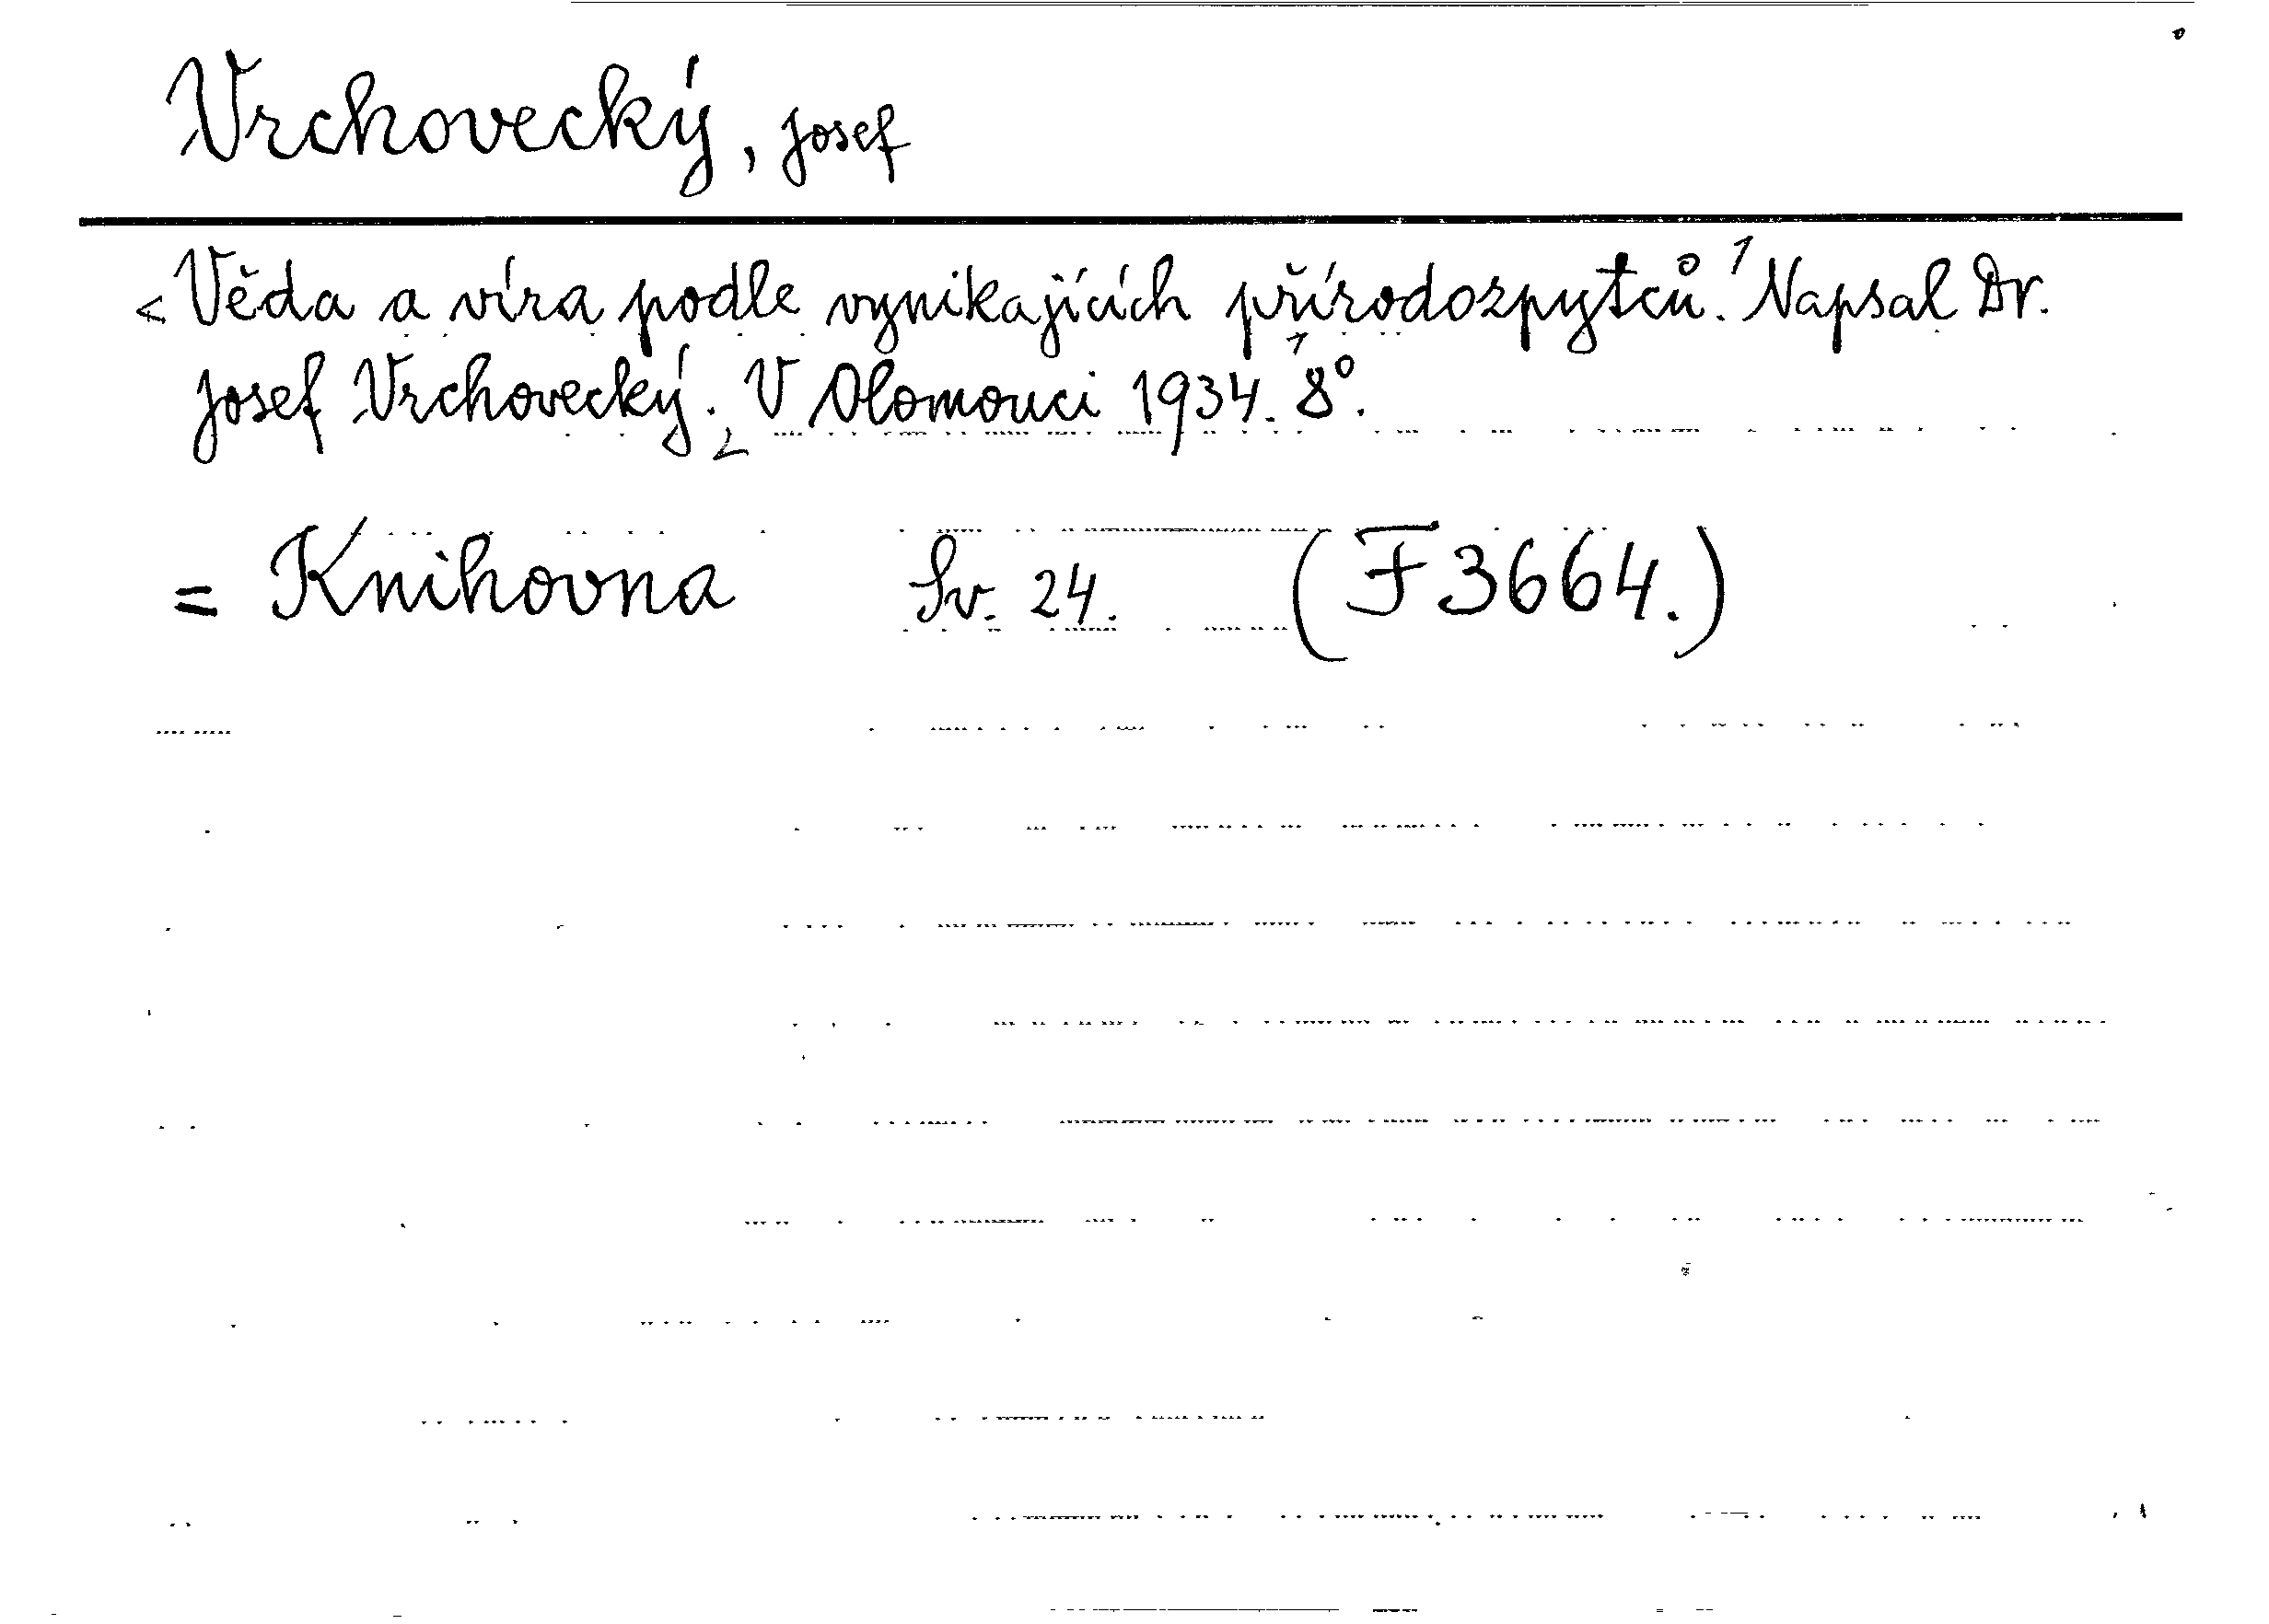 Vrchovecký, Josef
Věda a víra podle vynikajících přírodozpytců. Napsal Dr.
Josef Vrchovecký. V Olomouci 1934. 8°.
= Knihovna Sv. 24. (F 3664.)